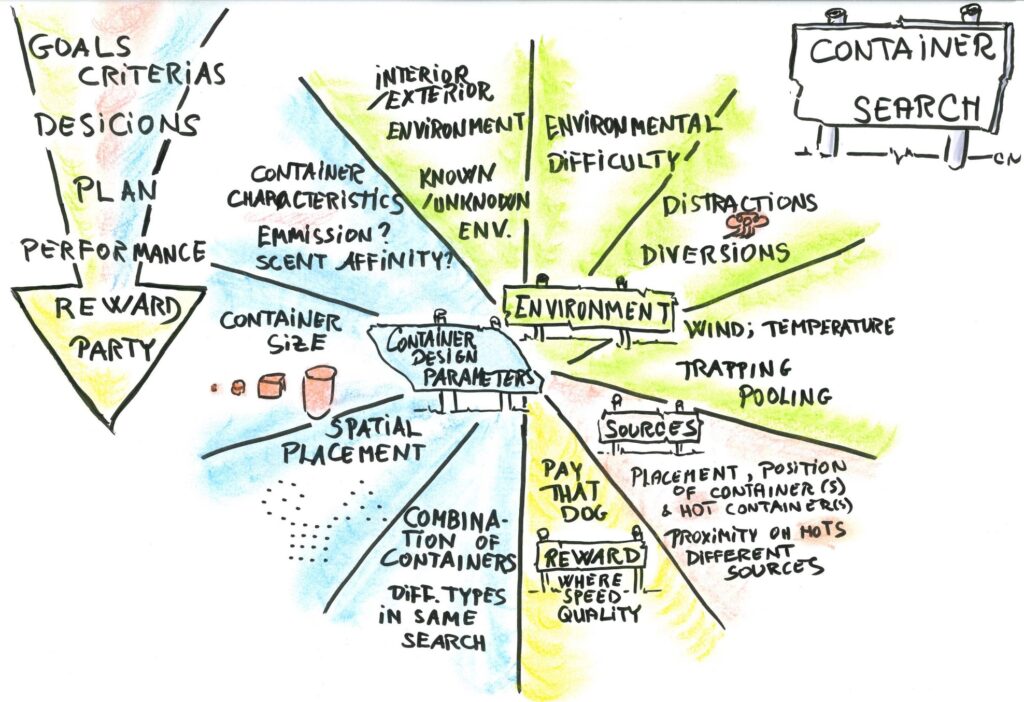 GOALS
CRITERIAS
DESICIONS
PLAN
PERFORMANCE
REWARD
PARTY
CONTAINER
SEARCH
CN
INTERIOR
/EXTERIOR
ENVIRONMENT
KNOWN
/UNKNOWN
ENV.
ENVIRONMENTAL
DIFFICULTY
DISTRACTIONS
DIVERSIONS
ENVIRONMENT
WIND; TEMPERATURE
TRAPPING
POOLING
CONTAINER
CHARACTERISTICS
EMMISSION?
SCENT AFFINITY?
CONTAINER
SIZE
CONTAINER
DESIGN
PARAMETERS
SPATIAL
PLACEMENT
COMBINA-
TION OF
CONTAINERS
DIFF. TYPES
IN SAME
SEARCH
PAY
THAT
DOG
REWARD
WHERE
SPEED-
QUALITY
SOURCES
PLACEMENT, POSITION
OF CONTAINER(S)
& HOT CONTAINER(S)
PROXIMITY OH HOTS
DIFFERENT
SOURCES